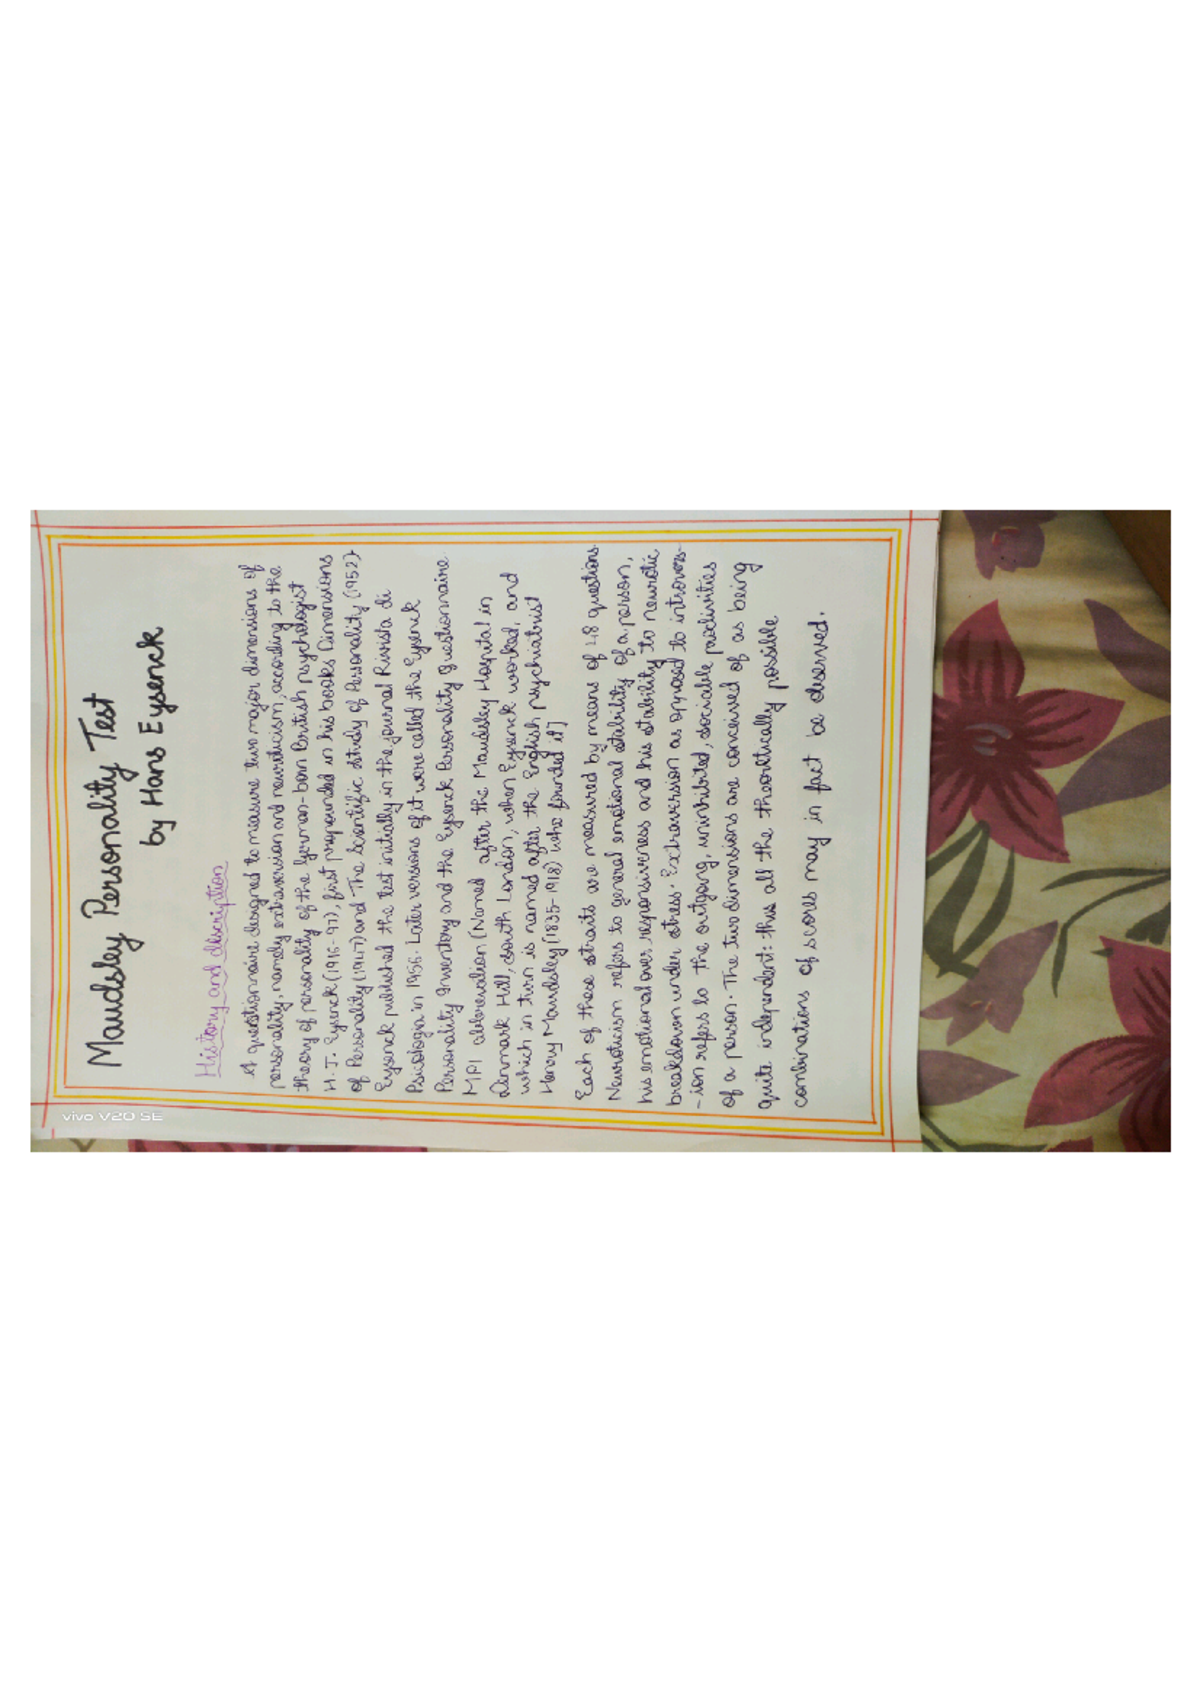 Maudsley Personality Test
by Hans Eysenck
History and discription
A questionnaire designed to measure two major dimensions of
personality, namely extraversion and neuroticism, according to the
theory of personality of the German-born British psychologist
H.J. Eysenck (1916-97), first propounded in his books Dimensions
of Personality (1947) and The Scientific study of Personality (1952).
Eysenck published the test initially in the journal Rivista di
Psicologia in 1956. Later versions of it were called the Eysenck
Personality Inventory and the Eysenck Personality Questionnaire
MPI abbreviation (Named after the Maudsley Hospital in
Denmark Hill, south London, when Eysenck worked, and
which in turn is named after the English psychiatrist
Henry Maudsley (1835-1918) who founded it]
Each of these straits are measured by means of 48 questions
Neuroticism refers to general emotional stability of a person,
his emotional over responsiveness and his stability to neurotic
breakdown under stress. Extraversion as opposed to introvers-
-ion refers to the outgoing, uninhibited, sociable proclivities
of a person. The two dimensions are conceived of as being
quite independent: thus all the theoritically possible
combinations of scores may in fact be observed.
vivo V20 SE